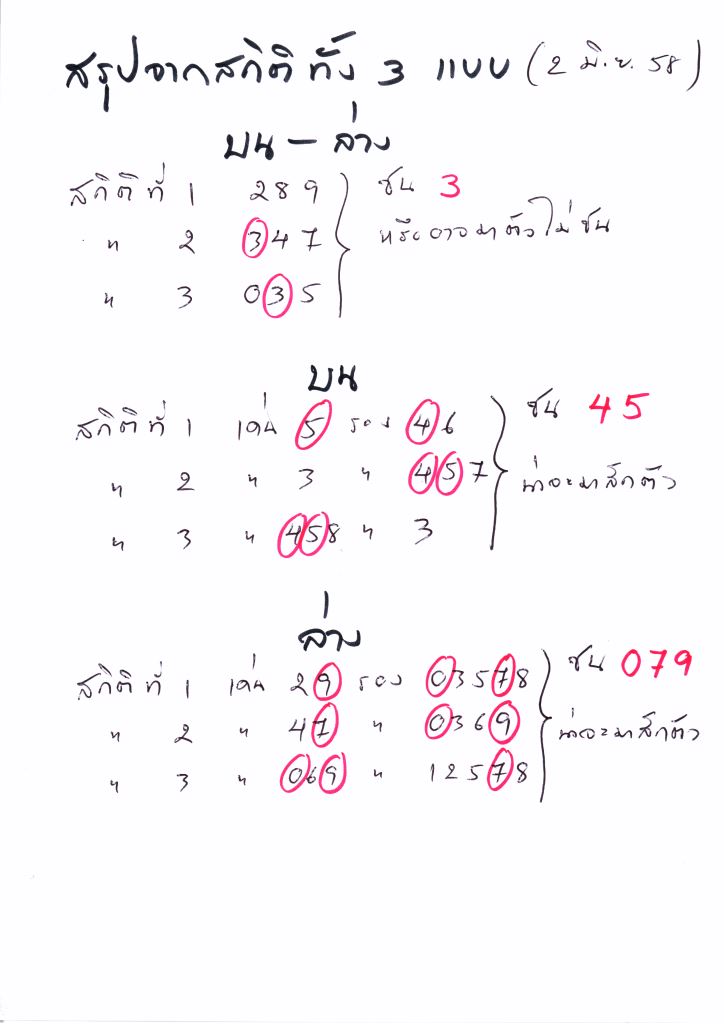 สรุปจากสถิติทั้ง 3 แบบ (2 มิ.ย. 58)
บน - ล่าง
สถิติที่ 1 289 ชน 3
" 2 347 หรืออาจมาตัวไม่ชน
" 3 035
บน
สถิติที่ 1 เด่น 5 รอง 46 ชน 45
" 2 " 3 " 457 น่าจะมาสักตัว
" 3 " 458 " 3
ล่าง
สถิติที่ 1 เด่น 29 รอง 03578 ชน 079
" 2 " 47 " 0369 น่าจะมาสักตัว
" 3 " 069 " 12578